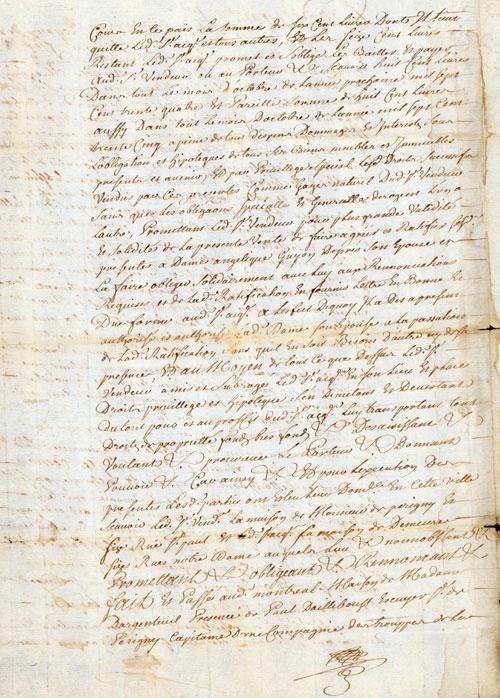 Cours En ce païs La Somme de Six Cent Livres Dont Il tient
quitte Led. Sr. acqr. et tous autres, Et Les Seize Cent Livres
Restant Led. Sr. acqr. promet et soblige Les Bailler et payer
Aud. Sr. Vendeur ou au Porteur & Scavoir huit Cent Livres
Dans tout Le mois Doctobre de Lannée prochaine mil Sept
Cent trente quatre Et Pareille Somme de huit Cent Livres
aussy Dans tout Le mois Doctobre de Lannée mil Sept Cent
trente Cinq a peine de tous despens Dommages Et Interests Sous
Lobligation et hipoteques de tous Ses biens meubles et Immeubles
presents et avenir, Et par Privillege special Lesd. Droits Successifs
Vendus par Ces presentes Comme gage naturel Dud. Sr. Vendeur
Sans que Les obligaons Specialle Et Generalle derogent Lun a
Lautre, Promettant Led. Sr. Vendeur pour plus grande Validité
et Solidité de La presente Vente de faire agréer et Ratifier
presentes a Dame angelique Guyon Depres Son Epouse et
La faire obliger Solidairement avec luy aux Renonciations
Requises et de Lad. Ratification En fournir Lettre en Bonne Et
Due forme aud. Sr. acqr. a Leffet Dequoy Il a Des a present
authorisé et authorise Lad. Dame Son Epouse a la passation
de Lad. Ratification Sans quil En Soit Besoin Dautre
presence Et au Moyen de tout Ce que Dessus Led. Sr.
Vendeur a mis et Subrogé Led. Sr. acqr. en Son Lieu Et place
Droits privillege Et hipoteque Sen Demetant et Devestant
du tout pour et au proffit Dud. Sr. acqr. Luy transportant tous
Droits de propriette fonds tres fonds & Dessaisissant &
Voulant & procureur Le Porteur & Donnant
Pouvoir & Car ainsy & Et pour Lexecution Des
presentes Lesd. parties ont Eleu Leur Domlle En Cette Ville
Scavoir Led. Sr. Vendr. La maison de Monsieur de perigny
Size Rue St. paul et Led. Sr. acqr. La maison de Demeure
Size Rue notre Dame auxquels Lieux & nonobstant &
Promettant & obligeant & Rennonceant &
fait Et Passé aud. montreal Maison de Madame
Dargenteuil Presence de Paul Dailleboust Ecuyer Sr. de
Perigny Capitaine Dune Compagnie des trouppes de La